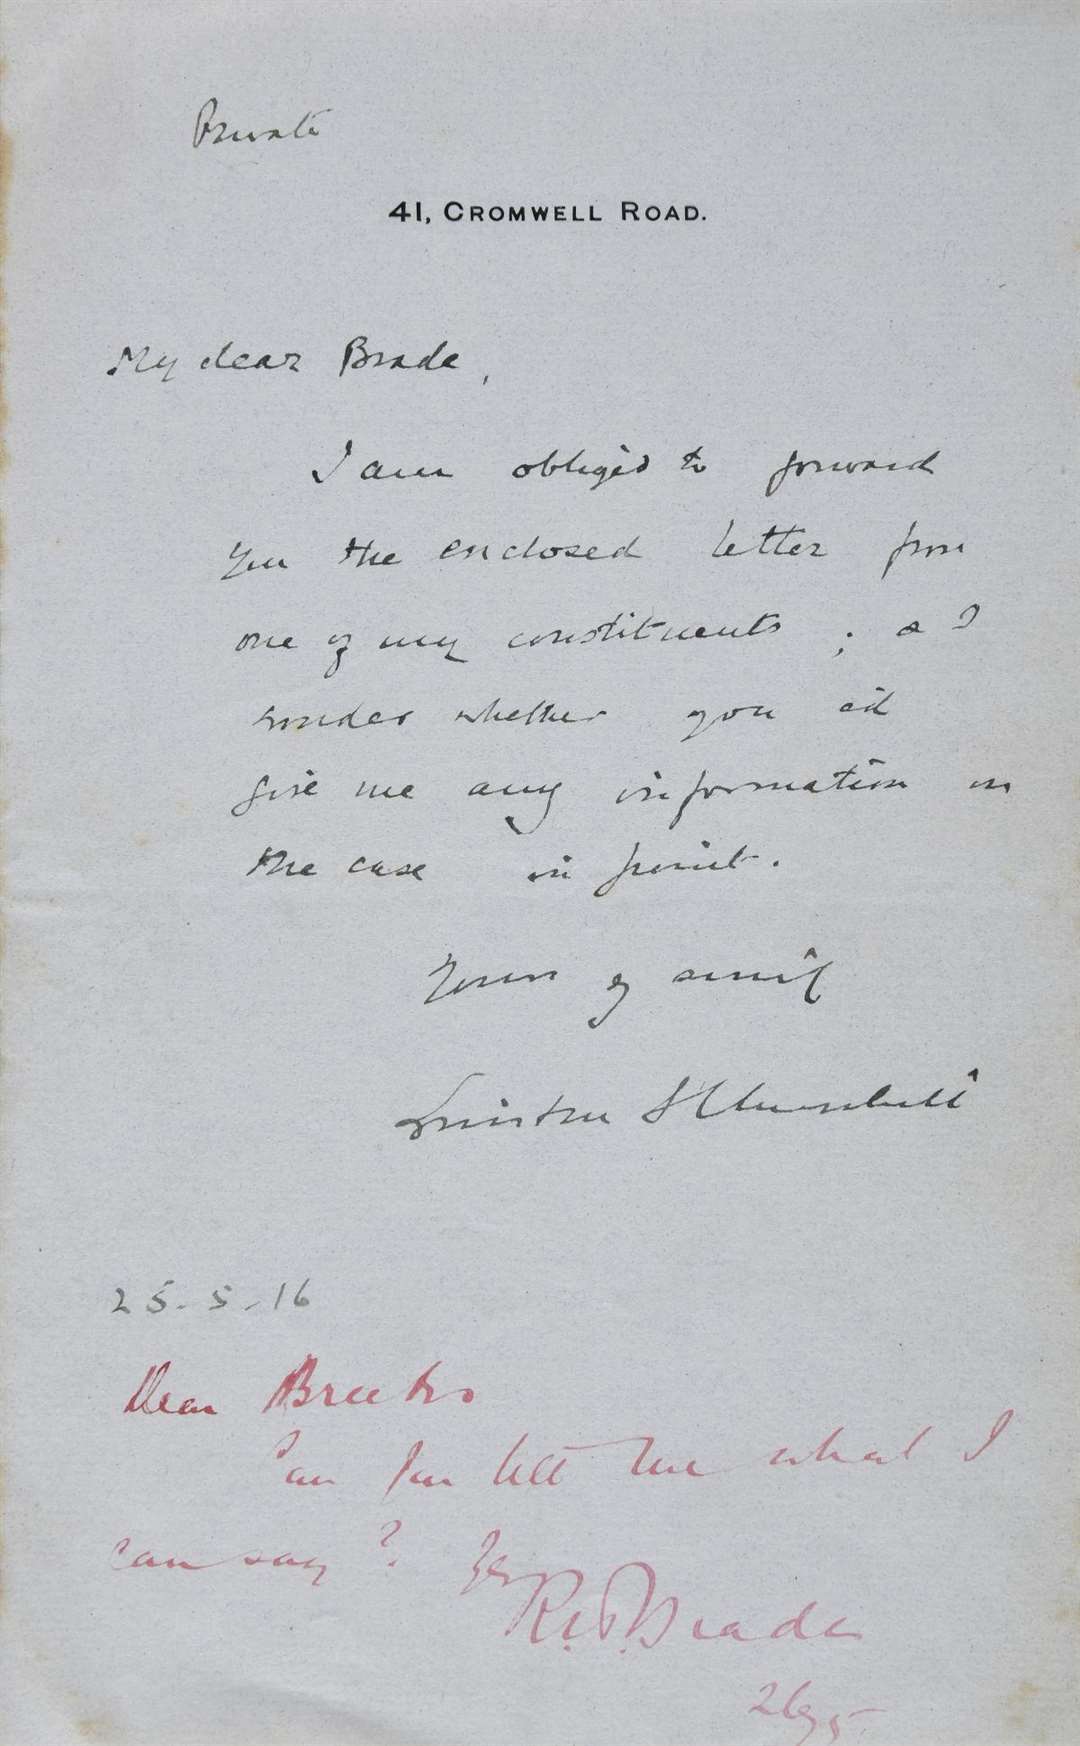 Private
41, CROMWELL ROAD.
My dear Brade,
I am obliged to forward
you the enclosed letter from
one of my constituents ; & I
wonder whether you cd
give me any information on
the case in point.
Yours
Winston S Churchill
25-5-16
Dear
Can you tell me what I
can say? Yrs
R.H.Brade
26/5